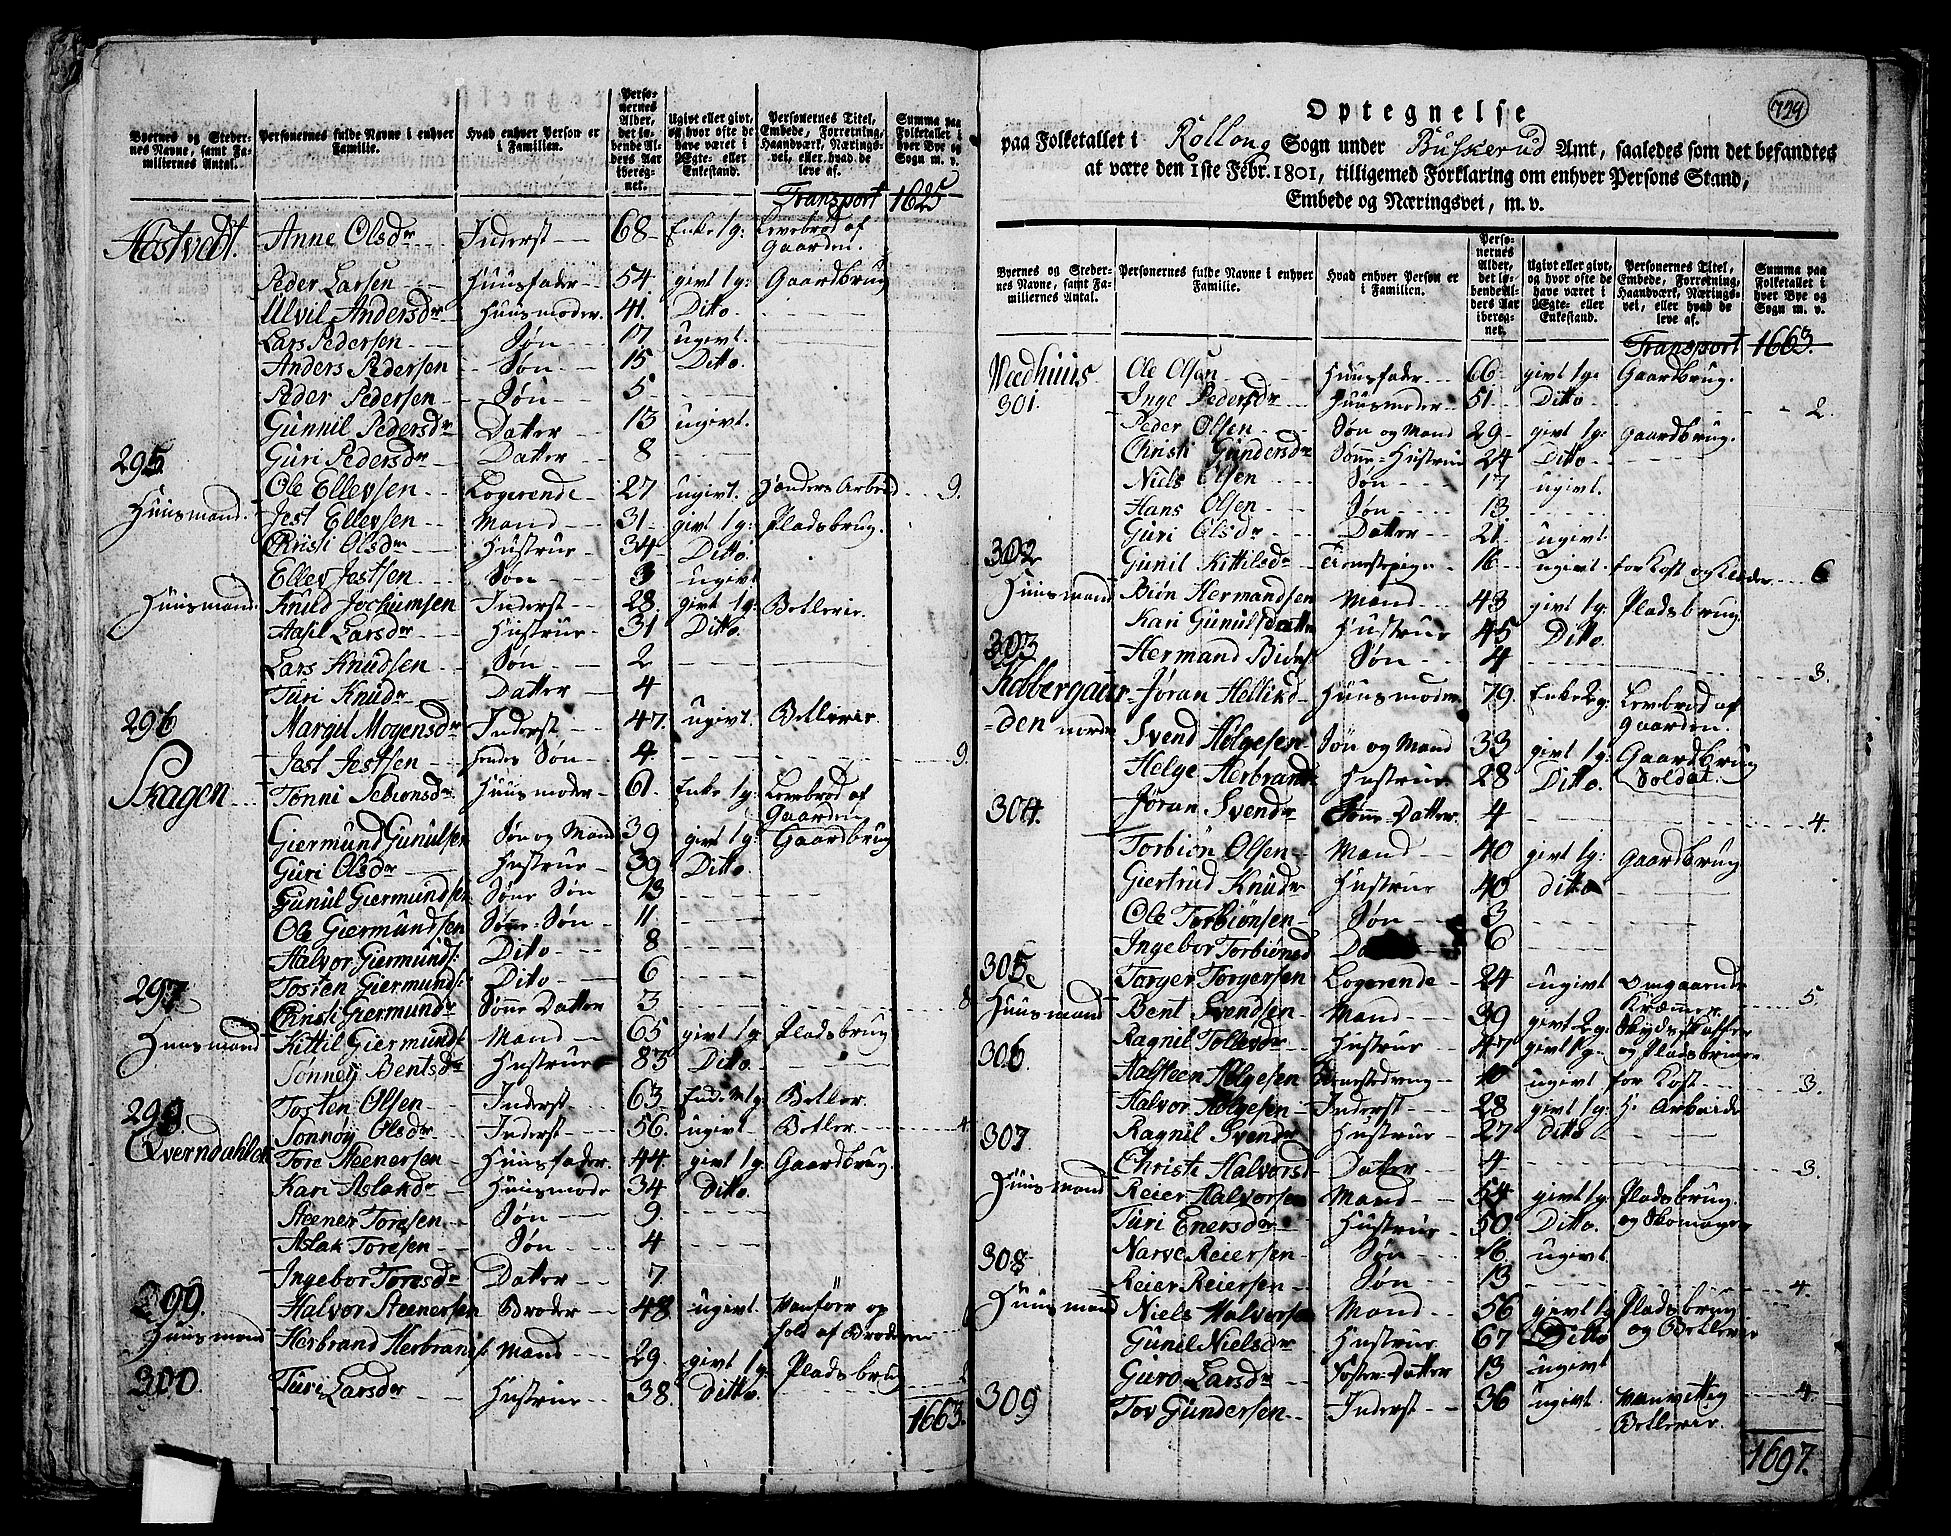 Byernes og Stedernes Navne, samt Familiernes Antal.
Personernes fulde Navne i enhver Familie.
Hvad enhver Person er i Familien.
Personernes Alder, det løbende Alders Aar iberegnet.
Ugivt eller givt, og hvor ofte de have været i Ægte- eller Enkestand.
Personernes Titel, Embede, Forretning, Haandværk, Næringsvei, eller hvad de leve af.
Summa paa Folketallet i hver Bye og Sogn m. v.
Transport 1625
Anne Olsdr Inderst 68 Enke 1 g: Levebrød af Gaarden.
Peder Larsen Huusfader 54 givt 1 g: Gaardbrug
Ulvil Andersdr Huusmoder 41 Ditto
Lars Pedersen Søn 17 ugivt.
Anders Pedersen Søn 15 Ditto
Peder Pedersen Søn 5
Gunnil Pedersdr Datter 13 ugivt.
295
Guri Pedersdr Datter 8
Ole Ellevsen Logerende 27 ugivt. Hænders Arbeid 9.
Huusmand. Jest Ellevsen Mand 31 givt 1 g: Pladsbrug.
Christi Olsdr Hustrue 34 Ditto
Ellev Jestsen Søn 3 ugivt
Huusmand. Knud Jochumsen Inderst 28 givt 1 g: Betlerie.
Aasil Larsdr Hustrue 31 Ditto.
Lars Knudsen Søn 2
Turi Knudr Datter 4
296 Margit Mogensdr Inderst 47. ugivt. Betlerie.
Jest Jestsen hendes Søn 4 9.
Skagen Tonni Sebionsdr Huusmoder 61. Enke 1 g: Levebrød af Gaarden
Giermund Gunulsen Søn og Mand 39 givt 1 g: Gaardbrug
Guri Olsdr Hustrue 39 Ditto
Gunul Giermunds Søne Søn 13
Ole Giermundsen Sønne Søn 11.
Halvor Giermunds: Ditto 8
Tosten Giermunds: Ditto 6
297 Christi Giermundr Sønne Datter 3 8
Huusmand Kittil Giermunds: Mand 65 givt 1 g. Pladsbrug
Sonnøy Bentsdr Hustrue 83 Ditto
298 Tosten Olsen Inderst 63 Betler
Sonnøy Olsdr Inderst 56. ugivt Betler 4
Tore Steenersen Huusfader 44 givt 1 g: Gaardbrug.
Kari Aslakdr Huusmoder 34 Ditto
Steener Toresen Søn 9.
Aslak Toresen Søn 4
Ingebor Toresdr Datter 7
299. Halvor Steenersen Broder 48 ugivt
Huusmand Herbrand Herbrands: Mand 29 givt 1 g: Pladsbrug
300. Turi Larsdr Hustrue 38. Ditto.
1663.
724
Optegnelse
paa Folketallet i Rollong Sogn under Buskerud Amt, saaledes som det befandtes
at være den 1ste Febr. 1801, tilligemed Forklaring om enhver Persons Stand,
Embede og Næringsvei, m. v.
Byernes og Stedernes Navne, samt Familiernes Antal.
Personernes fulde Navne i enhver Familie.
Hvad enhver Person er i Familien.
Personernes Alder, det løbende Alders Aar iberegnet.
Ugivt eller givt, og hvor ofte de have været i Ægte- eller Enkestand.
Personernes Titel, Embede, Forretning, Haandværk, Næringsvei, eller hvad de leve af.
Summa paa Folketallet i hver Bye og Sogn m. v.
Transport 1663.
Ole Olsen Huusfader 66 givt 1 g: Gaardbrug.
301. Inge Pedersdr Huusmoder 51 Ditto 2.
Peder Olsen Søn og Mand 29 givt 1 g: Gaardbrug.
Christi Gundersdr Sønne-Hustrue 24 Ditto
Niels Olsen Søn 17 ugivt.
Hans Olsen Søn 13
Guri Olsdr Datter 21 ugivt.
302 Gunil Kittilsdr Tienestepige 16 ugivt for Kost og Klæder 6
Huusmand Biøn Hermandsen Mand 43 givt 1 g: Pladsbrug.
Kari Gunulsdatter Hustrue 45 Ditto
303 Hermand Biøns: Søn 4 3.
Kobbergaarden nordre Jøran Hellikd Huusmoder 79. Enke 2 g: Levebrød af Gaarden.
Svend Helgesen Søn og Mand 33 givt 1 g: Gaardbrug Soldat.
Helge Herbrands Hustrue 28 Ditto.
304. Jøran Svendr Sønne-Datter. 4 4.
Torbiøn Olsen Mand 40 givt 1 g: Gaardbrug
Giertrud Knudr Hustrue 40 ditto
Ole Torbiønsen Søn 3
Ingebor Torbiønsd 6
305 Torger Torgersen Logerende 24 ugivt Omgaaende Kræmmer 5.
Huusmand Bent Svendsen Mand 39 givt 2 g: og Pladsbrug
306 Ragnil Tollevdr Hustrue 47 givt 1 g:
Halsteen Helgesen Tienestedreng 10 ugivt for Kost 3.
Halvor Helgesen Inderst 28 givt 1 g: H. Arbeide
307 Ragnil Svendr Hustrue 27 ditto
Christi Halvorsd Datter 4 3.
Huusmand Reier Halvorsen Mand 54 givt 1 g: Pladsbrug. og Skomager
Turi Enersdr Hustrue 50 Ditto.
308 Narve Reiersen Søn 16 ugivt.
Reier Reiersen Søn 13 4.
Huusmand Niels Halvorsen Mand 56 givt 1 g Pladsbrug og Betlerie
Gunil Nielsdr Hustrue 67 Ditto
Guro Larsdr Søster-Datter 13 ugivt
309 Tov Gundersen Inderst 36 ugivt vanvittig Betlerie. 4.
1697.